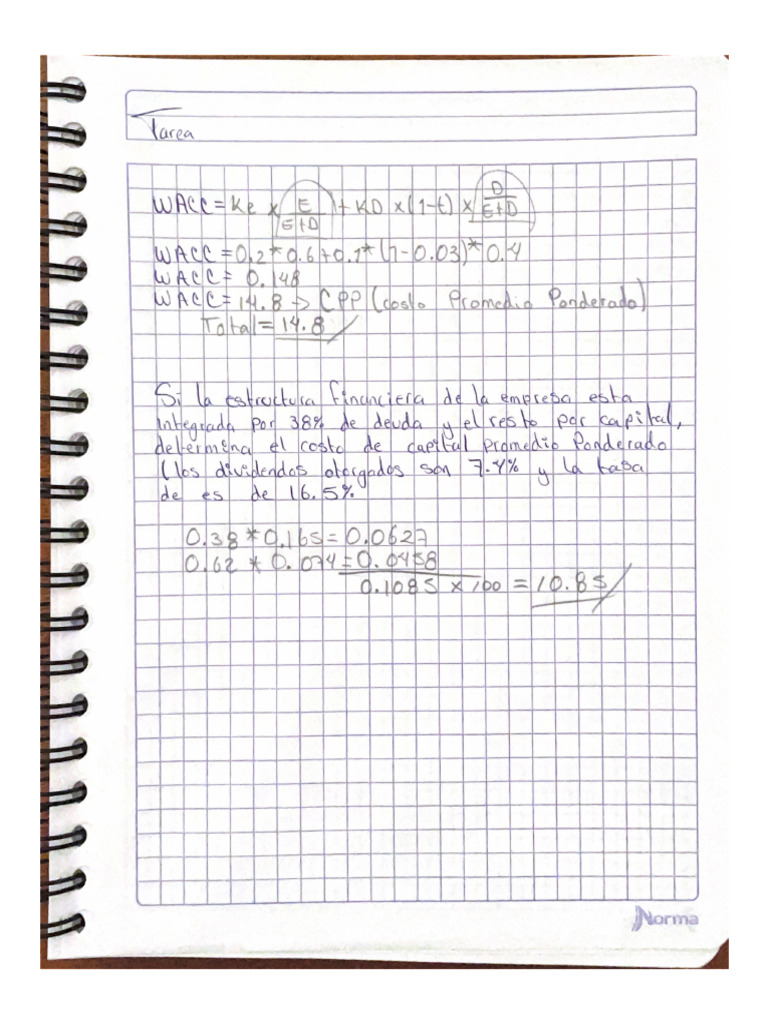 Tarea
WACC = Ke x E/E+D + KD x (1-t) x D/E+D
WACC = 0.2 * 0.6 + 0.1 * (1-0.03) * 0.4
WACC = 0.148
WACC = 14.8 → CPP (costo Promedio Ponderado)
Total = 14.8
Si la estructura financiera de la empresa esta
integrada por 38% de deuda y el resto por capital,
determina el costo de capital promedio Ponderado
(los dividendos otorgados son 7.4% y la tasa
de es de 16.5%
0.38 * 0.165 = 0.0627
0.62 * 0.074 = 0.0458
0.1085 x 100 = 10.85
Norma